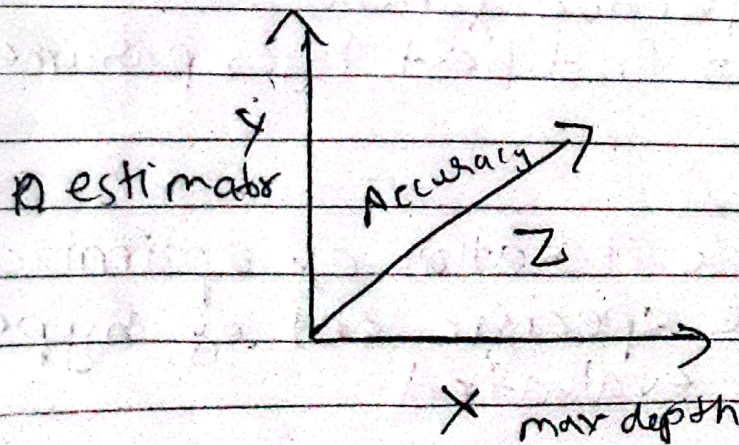 Y
n estimator
Accuracy
Z
X
max depth